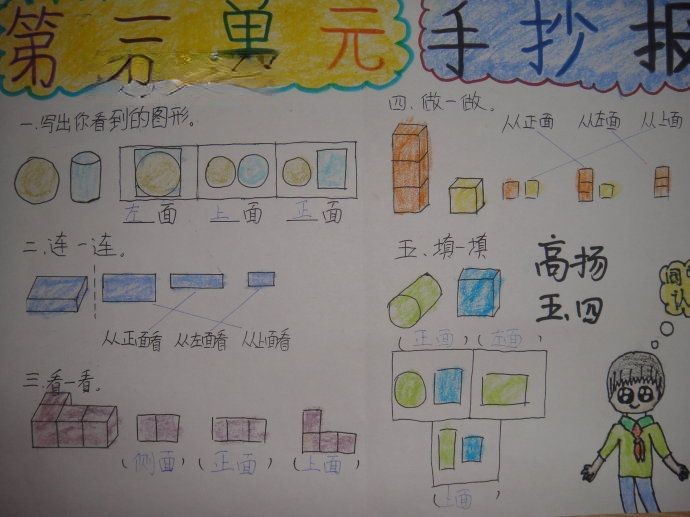 第二单元
手抄报
一、写出你看到的图形。
左面 上面 正面
二、连一连。
从正面看 从左面看 从上面看
三、看一看。
(侧面) (正面) (上面)
四、做一做。
从正面 从左面 从上面
五、填一填
(正面) (左面)
(上面)
高扬
五、四